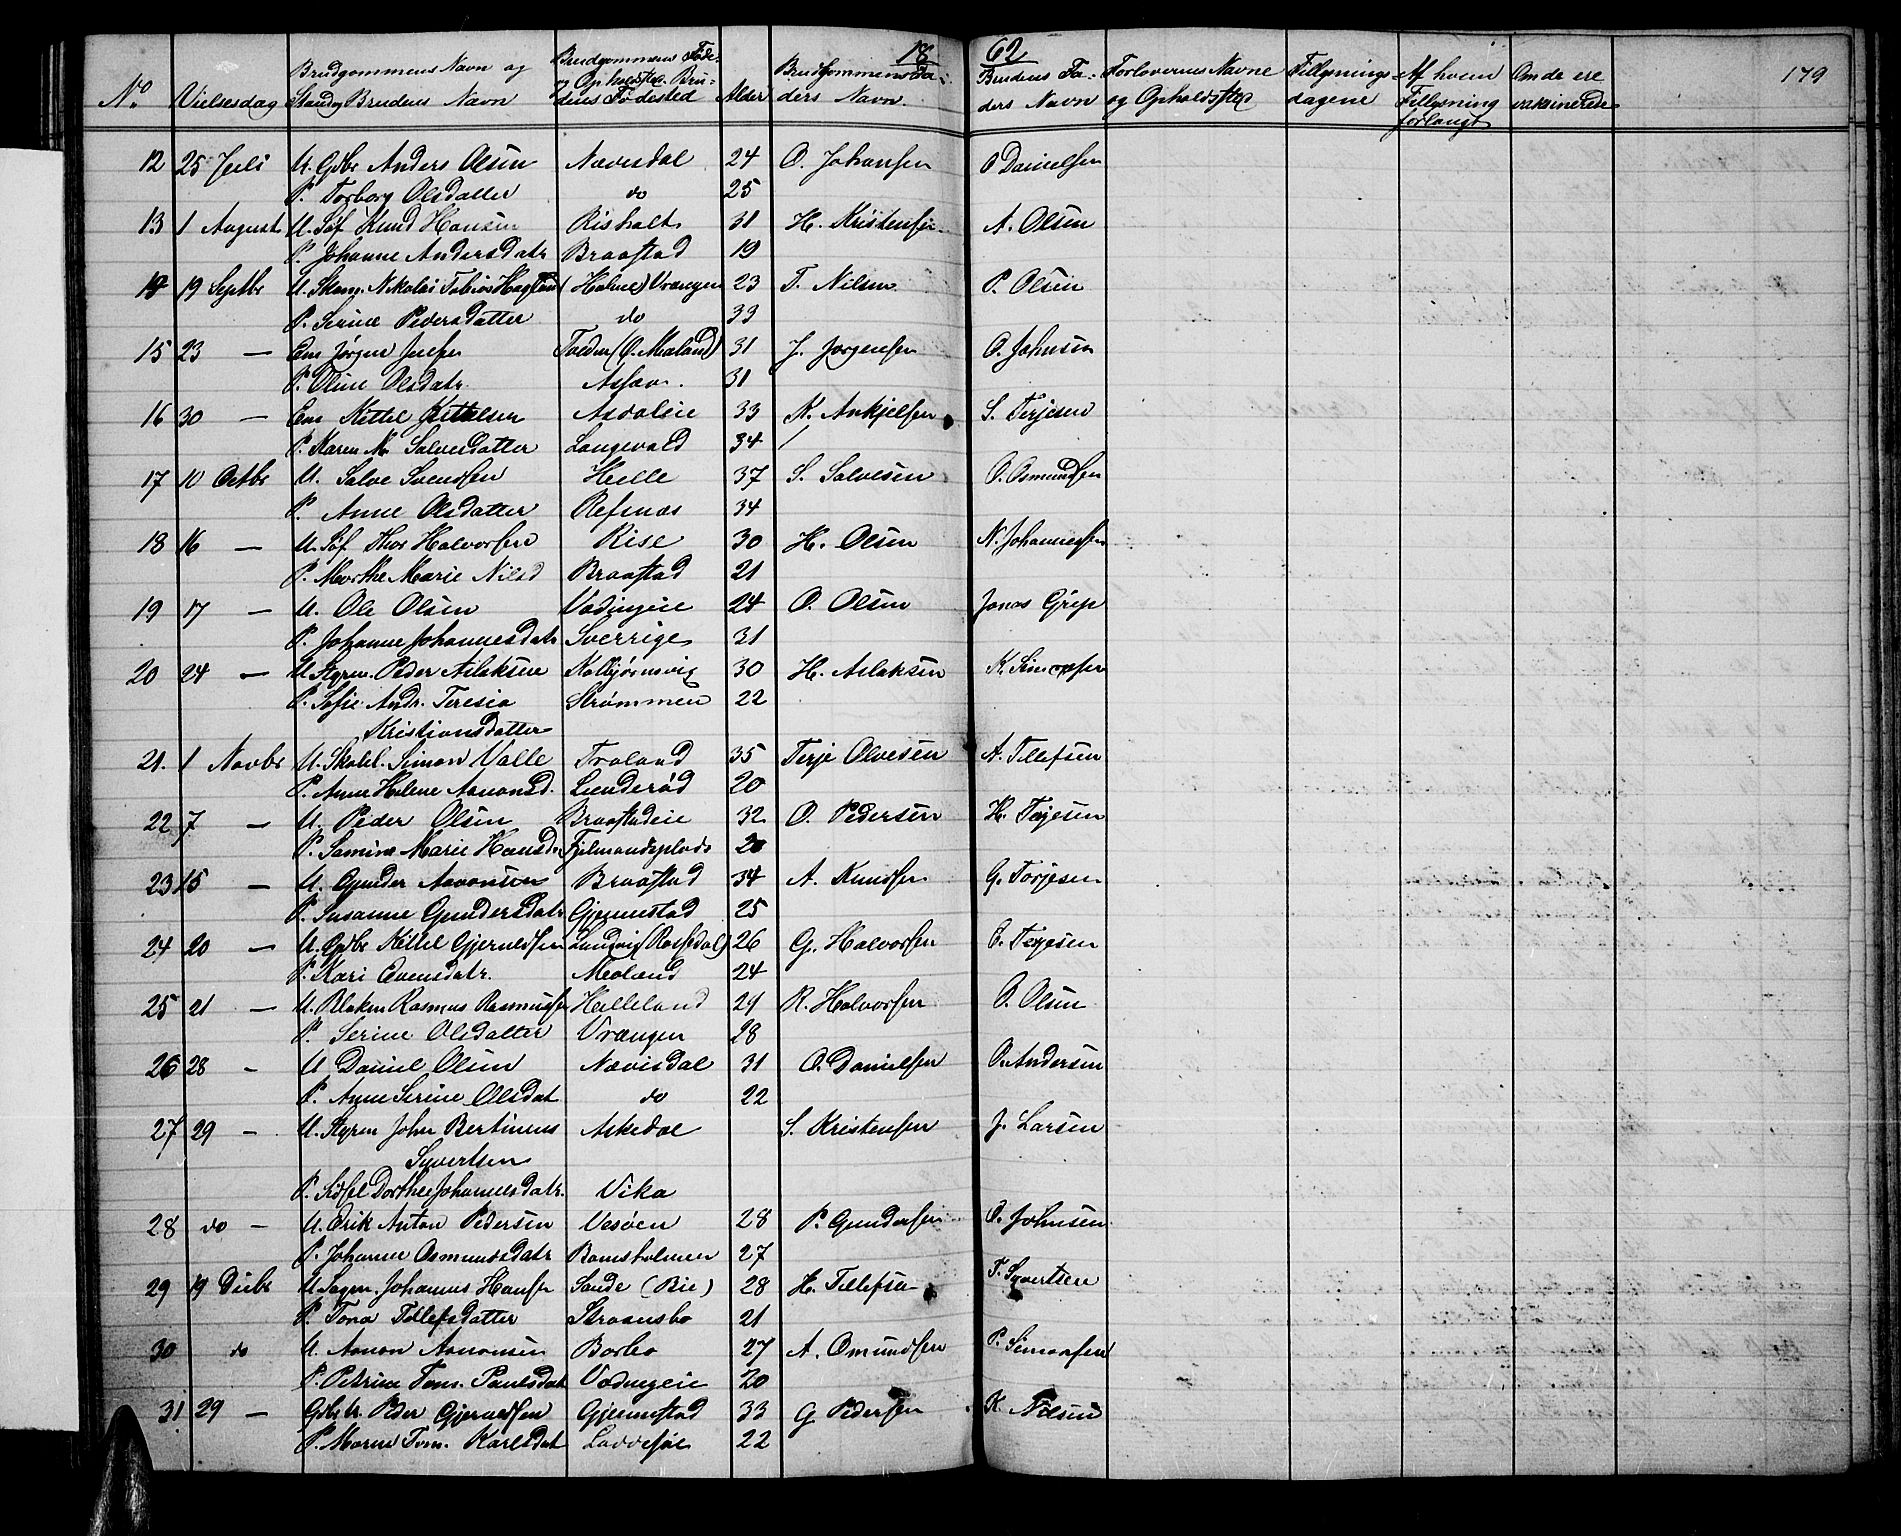 18 62
179
No Vielsesdag Brudgommens Navn og Stand og Brudens Navn Brudgommens Føde- og Opholdssted. Brudens Fødested Alder Brudgommens Faders Navn Brudens Faders Navn Forlovernes Navne og Opholdssted Tillysningsdagene Af hvem Tillysning forlangt Om de ere vaksinerede
12 25 Juli U. Gdbr Anders Olsen Nævisdal 24 O. Johansen O Danielsen
P. Torborg Olsdatter do 25
13 1 August U. Søf Knud Hansen Risholt 31 H. Kristensen A. Olsen
P. Johanne Andersdatr Braastad 19
14 19 Septbr U. Skom. Nikolai Tobias (Holme) Vrængen 23 T. Nilsen P. Olsen
P. Serine Pedersdatter do 33
15 23 — Em Jørgen Jensen 31 J. Jørgensen O. Johnsen
P. Oline Olsdatr. 31
16 30 — Em Kittel Kittelsen Asdaleie 33 K. Ankjelsen S. Terjesen
P. Karen M. Salvesdatter Langevold 34 /
17 10 Octbr U. Salve Svendsen Helle 37 S. Salvesen O. Osmundsen
P. Anne Olsdatter Refsnæs 34
18 16 — U. Søf Thor Halvorsen Rise 30 H. Olsen N. Johannesen
P. Marthe Marie Nilsd Braastad 21
19 17 — U. Ole Olsen Vodingeie 24 O. Olsen Jonas Grip
P. Johanne Johannesdatr Sverrige 31
20 24 — U. Styrm. Peder Aslaksen Kolbjørnsvig 30 H. Aslaksen K. Simonsen
P. Sofie Andr. Teresia Strømmen 22
Kristiansdatter
21. 1 Novbr U. Skolel. Simon Valle Traland 35 Terje Olvesen A. Tellefsen
P. Anne Helene Aanonsd. Lunderød 20
22 7 — U. Peder Olsen Braastadeie 32 O. Pedersen H. Terjesen
P. Samine Marie Hansd. 20
23 15 — U. Gunder Aanonsen Braastad 34 A. Knudsen G. Torjesen
P. Susanne Gundersdatr Gjennestad 25
24 20 — U. Gdbr Kittel Gjeruldsen 26 G. Halvorsen O. Terjesen
P. Kari Evensdatr. Moland 24
25 21 — U. Rasmus Rasmussen Helleland 29 R. Halvorsen O. Olsen
P. Serine Olsdatter Vrængen 28
26 28 - U Daniel Olsen Nævisdal 31 O. Danielsen O. Andersen
P. Anne Serine Olsdat do 22
27 29 - U. Styrm John Bertinius Askedal S. Kristensen J. Larsen
Syvertsen
P. Sidsel Dorthea Johannesdatr. Vika
28 do - U. Erik Anton Pedersen Vesøen 28 P. Gundersen O. Johnsen
P. Johanne Osmundsdatr Ramsholmen 27
29 19 Decbr U. Sagm. Johannes Hansen Sande (Bie) 28 H. Tellefsen T. Syvertsen
P. Tona Tellefsdatter 21
30 do U. Aanon Aanonsen Borbo 27 A. Omundsen P. Simonsen
P. Petrine Tom. Paulsdat Vodingeie 20
31 29 — Gdbr U. Peder Gjeruldsen Gjennestad 33 G Pedersen K. Nilsen
P. Maren Tom. Karlsdat 22